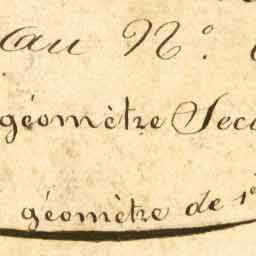 au N.º
géomètre Sec
géomètre de 1e